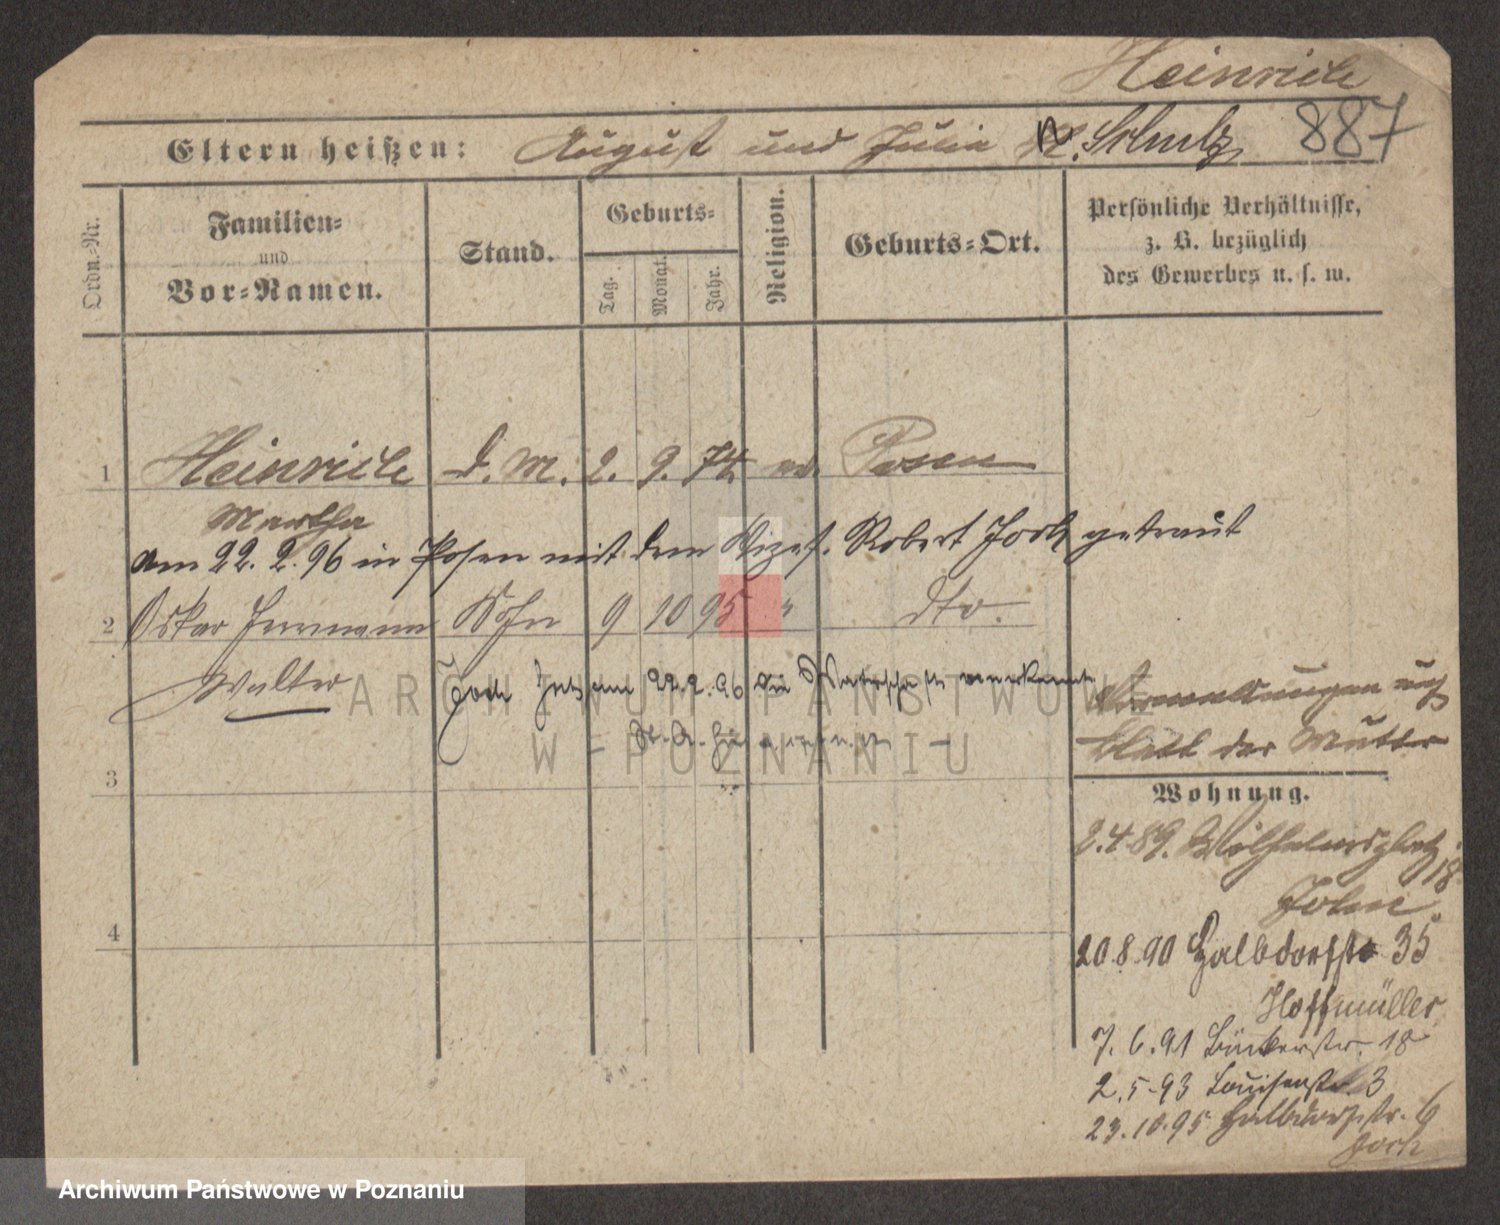 Heinrich
Eltern heißen: August und Julia Schulz 887
Ordn.-Nr.
Familien-
und
Vor-Namen.
Stand.
Geburts-
Tag.
Monat.
Jahr.
Religion.
Geburts-Ort.
Persönliche Verhältnisse,
z. B. bezüglich
des Gewerbes u. s. w.
1 Heinrich D. M. 2. 9. 74 ev. Posen
Martha
am 22. 2. 96 in Posen mit dem Vizef. Robert Jock getraut
2 Oskar Hermann Sohn 9 10 95 " dto.
Walter
Jock am 22.2.96 die Vaterschaft anerkannt
Bemerkungen auf
Blatt der Mutter
3
Wohnung.
2.4.89. Wilhelmsplatz 18
4
20.8.90 Halbdorfstr 35
Hoffmüller
7.6.91 Bäckerstr. 18
2.5.93 Louisenstr. 3
23.10.95 Halbdorfstr. 6
Jock
ARCHIWUM PAŃSTWOWE
W POZNANIU
Archiwum Państwowe w Poznaniu